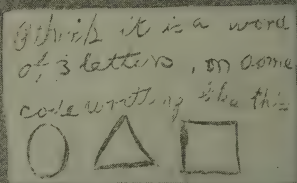 I think it is a word
of 3 letters, in some
code writting like this